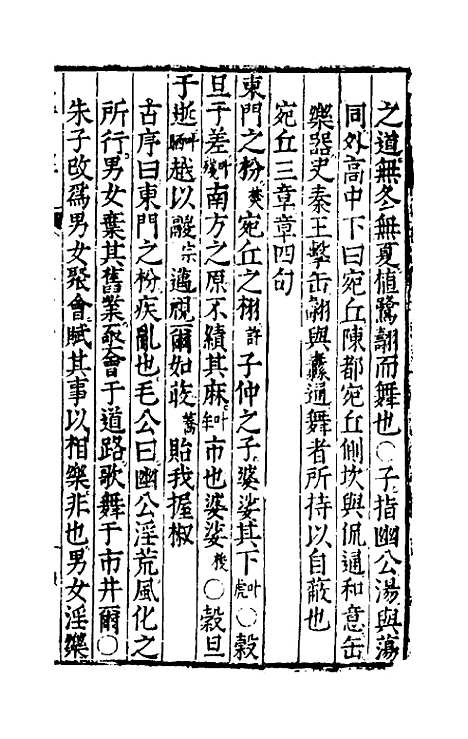 之道無冬無夏植鷺翿而舞也○子指幽公湯與蕩
同外高中下曰宛丘陳都宛丘側坎與侃通和意缶
樂器史秦王擊缶翿與纛通舞者所持以自蔽也
宛丘三章章四句
東門之枌焚宛丘之栩許子仲之子婆娑其下叶虎○穀
旦于差叶磋南方之原不績其麻叶牟市也婆娑○穀旦
于逝叶越以鬷宗邁視爾如荍蕎貽我握椒
古序曰東門之枌疾亂也毛公曰幽公淫荒風化之
所行男女棄其舊業亟會于道路歌舞于市井爾○
朱子改爲男女聚會賦其事以相樂非也男女淫樂